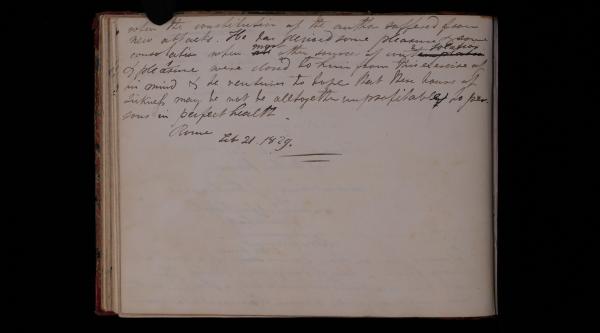 when the constitution of the author suffered from
new attacks. He has derived some pleasure & some
consolation when most other sources of consolation
& pleasure were closed to him from this exercise of
his mind & he ventures to hope that these hours of
sickness may be not be alltogether unprofitable to per
sons in perfect health.
Rome
Feb 21. 1829.